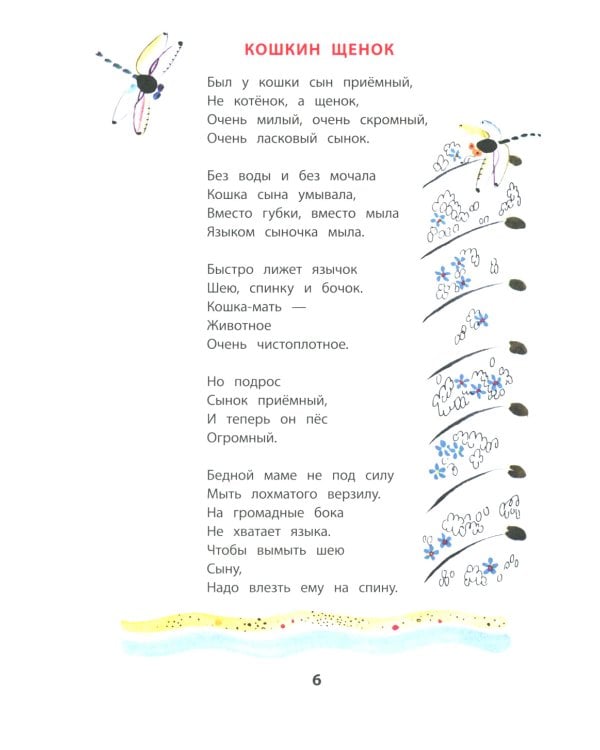 КОШКИН ЩЕНОК
Был у кошки сын приёмный,
Не котёнок, а щенок,
Очень милый, очень скромный,
Очень ласковый сынок.
Без воды и без мочала
Кошка сына умывала,
Вместо губки, вместо мыла
Языком сыночка мыла.
Быстро лижет язычок
Шею, спинку и бочок.
Кошка-мать —
Животное
Очень чистоплотное.
Но подрос
Сынок приёмный,
И теперь он пёс
Огромный.
Бедной маме не под силу
Мыть лохматого верзилу.
На громадные бока
Не хватает языка.
Чтобы вымыть шею
Сыну,
Надо влезть ему на спину.
6